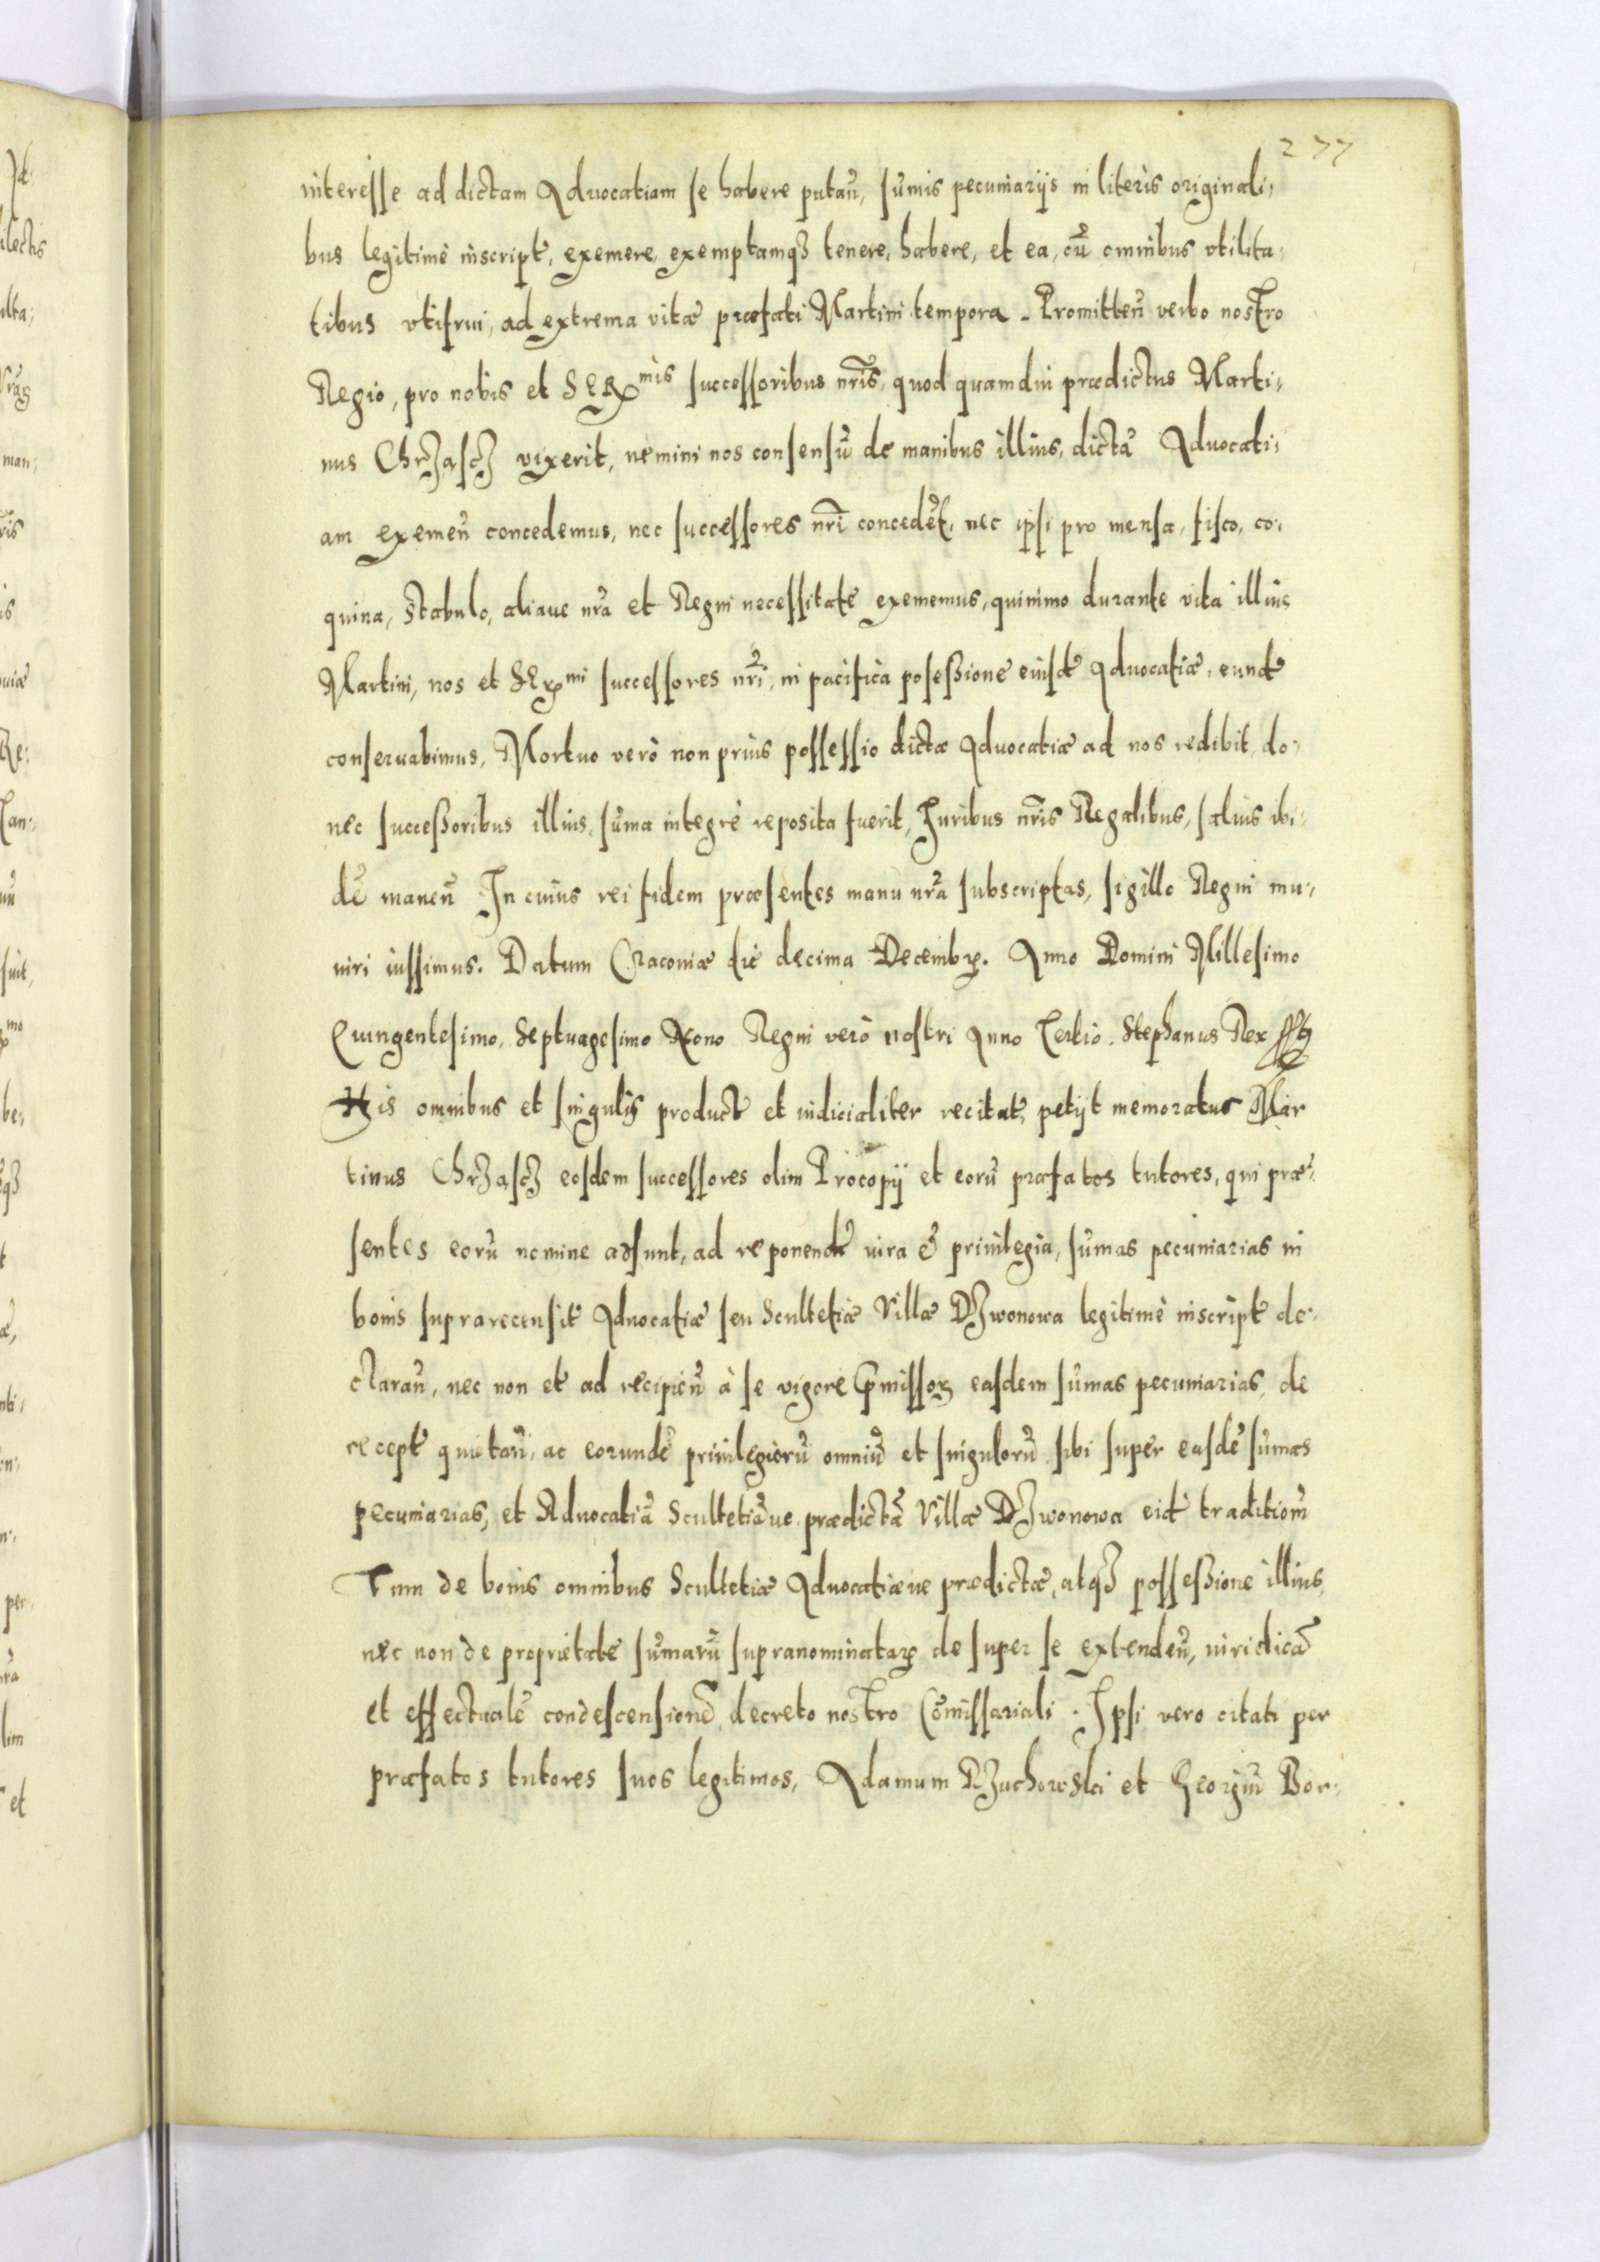 277
interesse ad dictam Advocatiam se habere putañ, sum̃is pecuniarijs in literis originali,
bus legitimè inscript, exemere, exemptamqȝ tenere, habere, et ea, cũ omnibus vtilita,
tibus vtifrui, ad extrema vitæ præfati Martini tempora. Promitteñ verbo nostro
Regio, pro nobis et SERmis successoribus nr̃is, quod quamdiu prædictus Marti,
nus Chrząscz vixerit, nemini nos consensũ de manibus illius, dictã Advocati,
am exemeñ concedemus, nec successores nr̃i concedẽt, nec ipsi pro mensa, fisco, co,
quina, stabulo, aliaue nr̃a et Regni necessitate exememus, quinimo durante vita illius
Martini, nos et SERmi successores nr̃i, in pacifica posessione eiusd Advocatiæ, eund
conseruabimus, Mortuo verò non prius possessio dictæ Advocatiæ ad nos redibit, do,
nec successoribus illius, sum̃a integrè reposita fuerit, Iuribus nr̃is Regalibus, saluis ibi,
dẽ maneñ In cuius rei fidem præsentes manu nr̃a subscriptas, sigillo Regni mu,
niri iussimus. Datum Cracouiæ die decima Decembr. Anno Domini Millesimo
Quingentesimo, Septuagesimo Nono Regni verò nostri Anno Tertio. Stephanus Rex sst
His omnibus et singulis product et iudicialiter recitat, petijt memoratus Mar
tinus Chrząscz eosdem successores olim Procopij et eorũ præfatos tutores, qui præ,
sentes eorũ nomine adsunt, ad reponend iura & priuilegia, sum̃as pecuniarias in
bonis suprarecensit Advocatiæ seu Scultetiæ Villæ Dzwonowa legitimè inscript de,
clarañ, nec non et ad recipieñ à se vigore p̃missoꝝ easdem sum̃as pecuniarias, de
recept quitañ, ac eorundẽ priuilegiorũ omniũ et singulorũ sibi super easdẽ sum̃as
pecuniarias, et Advocatiã Scultetiãue prædictã Villæ Dzwonowa eid traditioñ
Tum de bonis omnibus Scultetiæ Advocatiæue prædictæ, atqȝ possessione illius,
nec non de proprietate sum̃arũ supranominatar de super se extendeñ, iuridicã
et effectualẽ condescensionẽ decreto nostro Com̃issariali. Ipsi vero citati per
præfatos tutores suos legitimos, Adamum Dzuchowski et Georgiũ Bor,